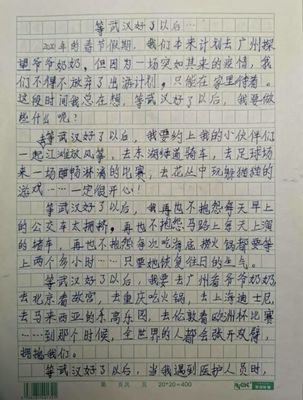 等武汉好了以后…
2020年的春节假期，我们本来计划去广州探
望爷爷奶奶，但因为一场突如其来的疫情，我
们不得不放弃了出游计划，只能在家里待着。
这段时间我总在想，等武汉好了以后，我要做
些什么呢？
等武汉好了以后，我要约上我的小伙伴们
一起江滩放风筝，去东湖绿道骑车，去足球场
来一场酣畅淋漓的比赛，去花丛中玩躲猫猫的
游戏……一定很开心！
等武汉好了以后，我再也不抱怨每天早上
的公交车太拥挤，再也不抱怨马路上每天上演
的堵车，再也不抱怨每次吃海底捞火锅都要等
上两个多小时……只要能恢复往日的生气。
等武汉好了以后，我要去广州看爷爷奶奶，
去北京看故宫，去重庆吃火锅，去上海迪士尼，
去马来西亚的乐高乐园，去伦敦看欧洲杯比赛
……到那个时候，全世界的人都会张开双臂，
拥抱我们。
等武汉好了以后，当我遇到医护人员时，
第 页共 页 20*20=400